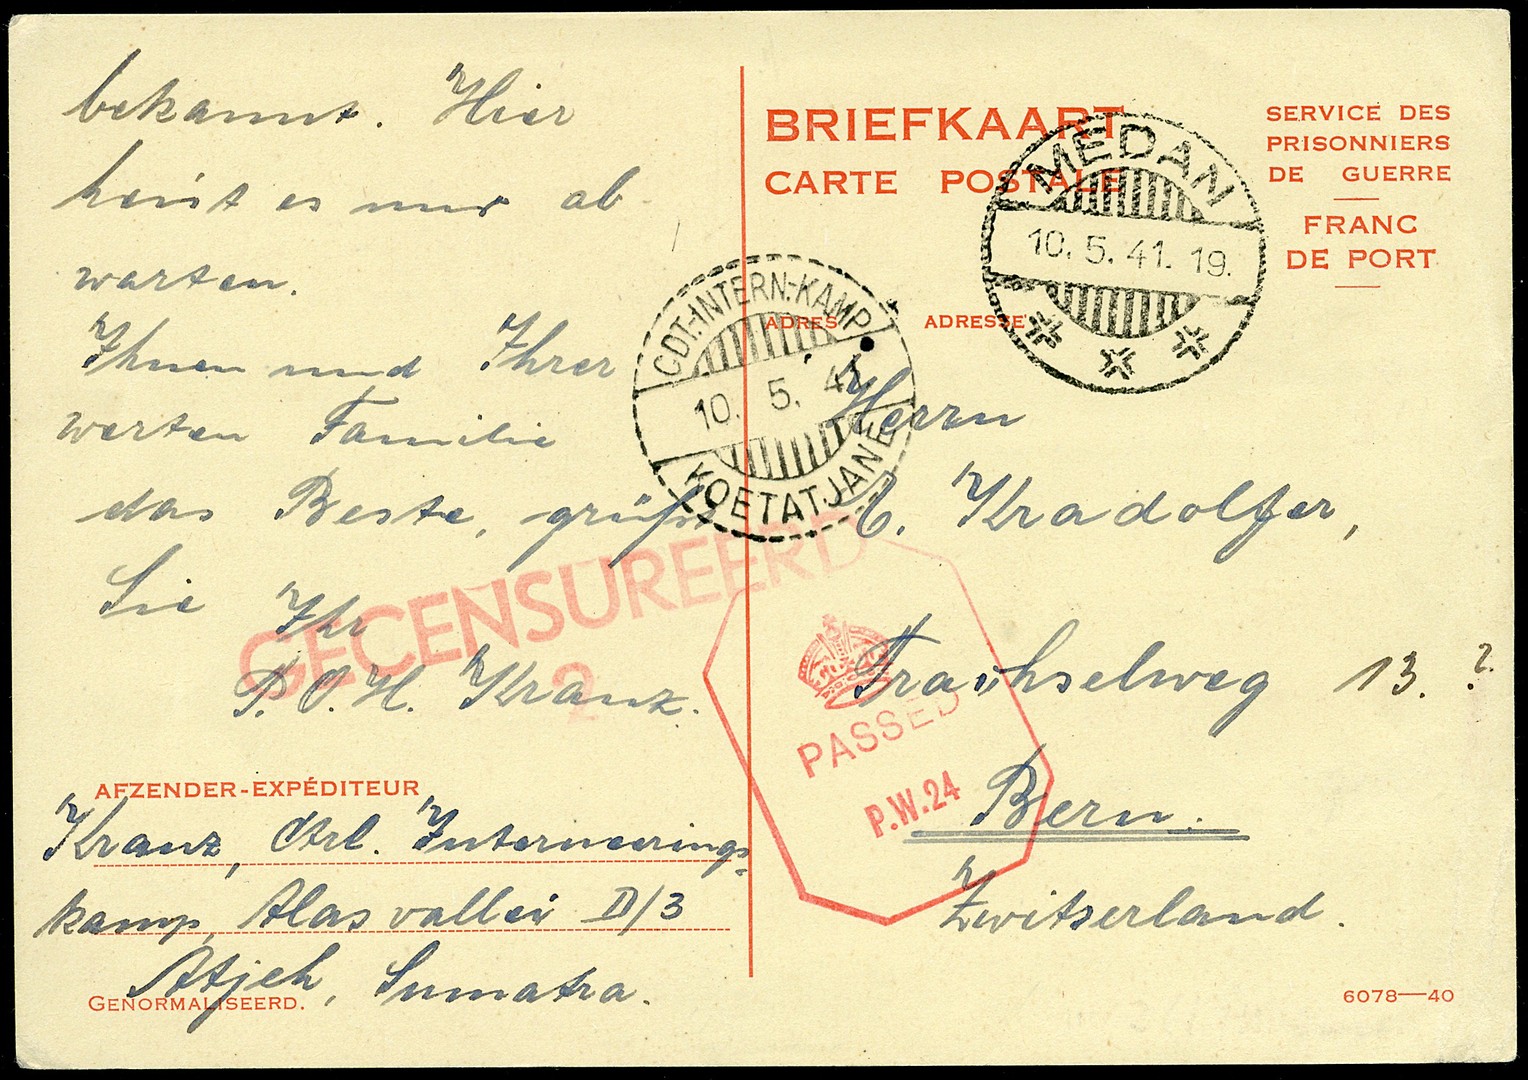 bekannt. Hier
heisst es nur ab-
warten.
Ihnen und Ihrer
werten Familie
das Beste, grüßt
Sie Ihr
P.O.H. Kranz.
AFZENDER-EXPÉDITEUR
Kranz, Ctrl. Interneerings-
kamp, Alasvallei D/3
Atjeh, Sumatra.
GENORMALISEERD.
GECENSUREERD
2
CDT.-INTERN.-KAMP
10. 5. 41
KOETATJANE
BRIEFKAART
CARTE POSTALE
SERVICE DES
PRISONNIERS
DE GUERRE
FRANC
DE PORT
MEDAN
10. 5. 41. 19.
ADRES ADRESSE
Herrn
C. Kradolfer,
Trachselweg 13. ?
Bern.
Zwitserland.
PASSED
P.W.24
6078—40